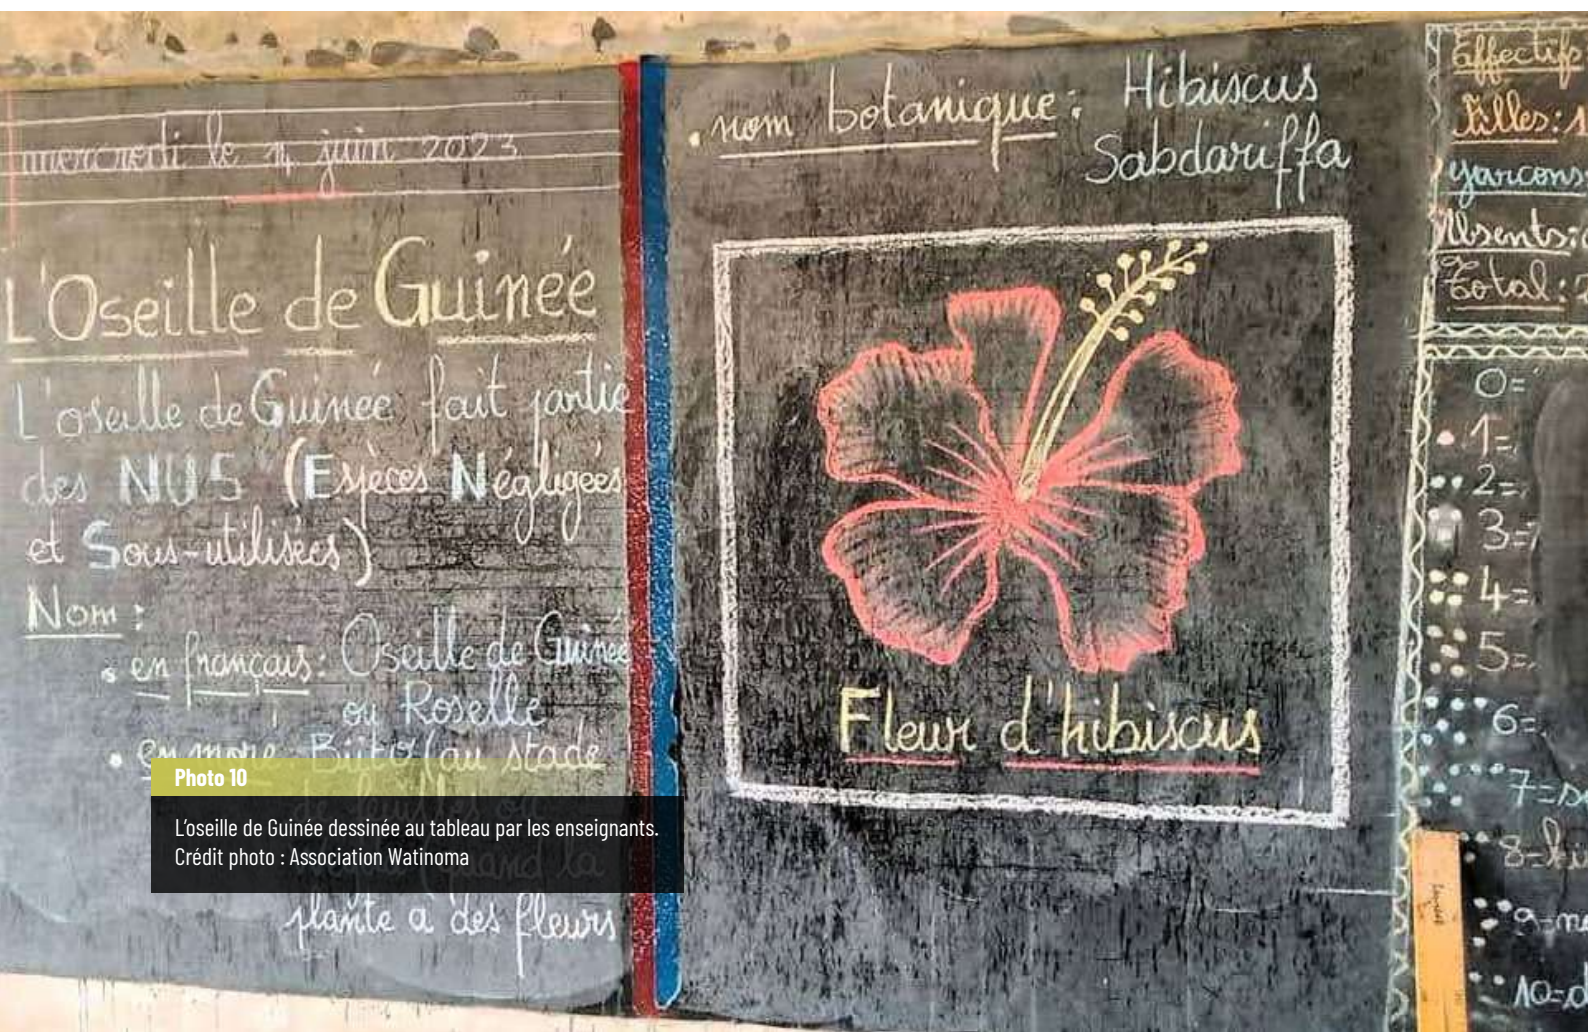 mercredi le 14 juin 2023
L'Oseille de Guinée
L'oseille de Guinée fait partie
des NUS (Espèces Négligées
et Sous-utilisées)
Nom :
• en français : Oseille de Guinée
ou Roselle
• en moré Biito (au stade
de feuilles ou
(quand la
plante a des fleurs
Photo 10
L'oseille de Guinée dessinée au tableau par les enseignants.
Crédit photo : Association Watinoma
• nom botanique : Hibiscus
Sabdariffa
Fleur d'hibiscus
Effectifs
Filles : 1
garcons
Absents :
Total :
0=
1=
2=
3=
4=
5=
6=
7=
8=
9=
10=d